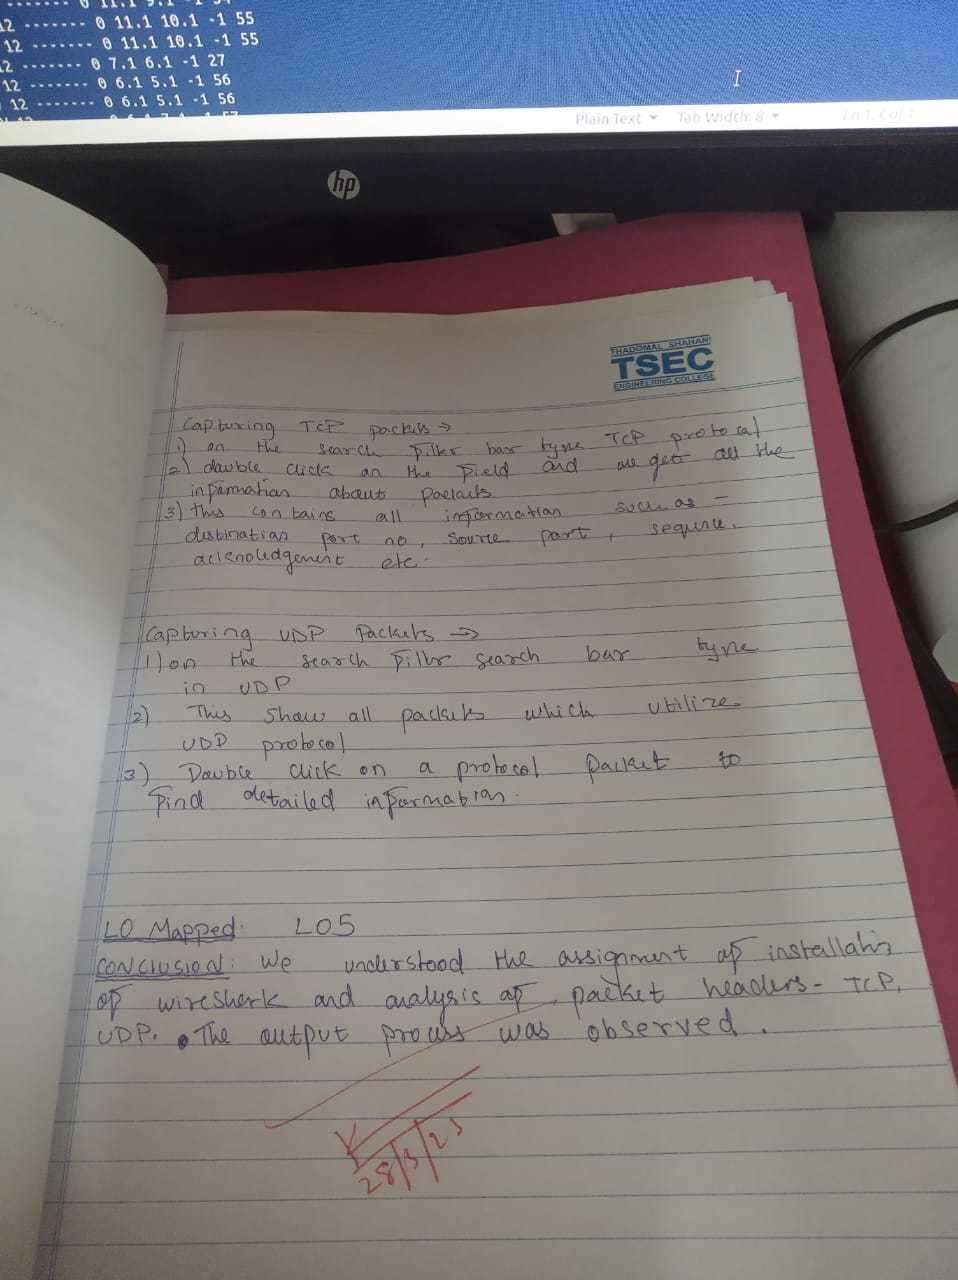 12 ------- 0 11.1 10.1 -1 55
12 ------- 0 11.1 10.1 -1 55
12 ------- 0 7.1 6.1 -1 27
12 ------- 0 6.1 5.1 -1 56
12 ------- 0 6.1 5.1 -1 56
Plain Text Tab Width: 8 Ln 1, Col 1
hp
THADOMAL SHAHANI
TSEC
ENGINEERING COLLEGE
Capturing TCP packets →
1) on the search filter bar type TCP protocal
2) double click on the field and we get all the
information about packets
3) this contains all information such as -
destination port no, source port, sequnce,
acknoledgement etc.
Capturing UDP Packets →
1) on the search filter search bar type
in UDP
2) This show all packets which utilize
UDP protocol
3) Double click on a protocol packet to
find detailed information.
LO Mapped: LO5
CONCLUSION: We understood the assignment of installatin
of wiresherk and analysis of packet headers - TCP,
UDP. The output process was observed.
28/3/23